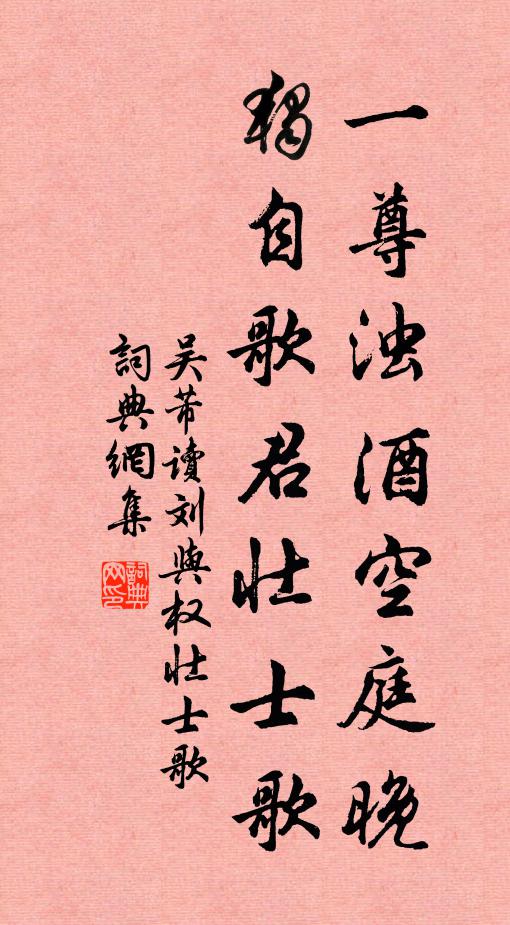 一尊浊酒空庭晚
独自歌君壮士歌
吴芾读刘與权壮士歌
詞典網集
詞典网印